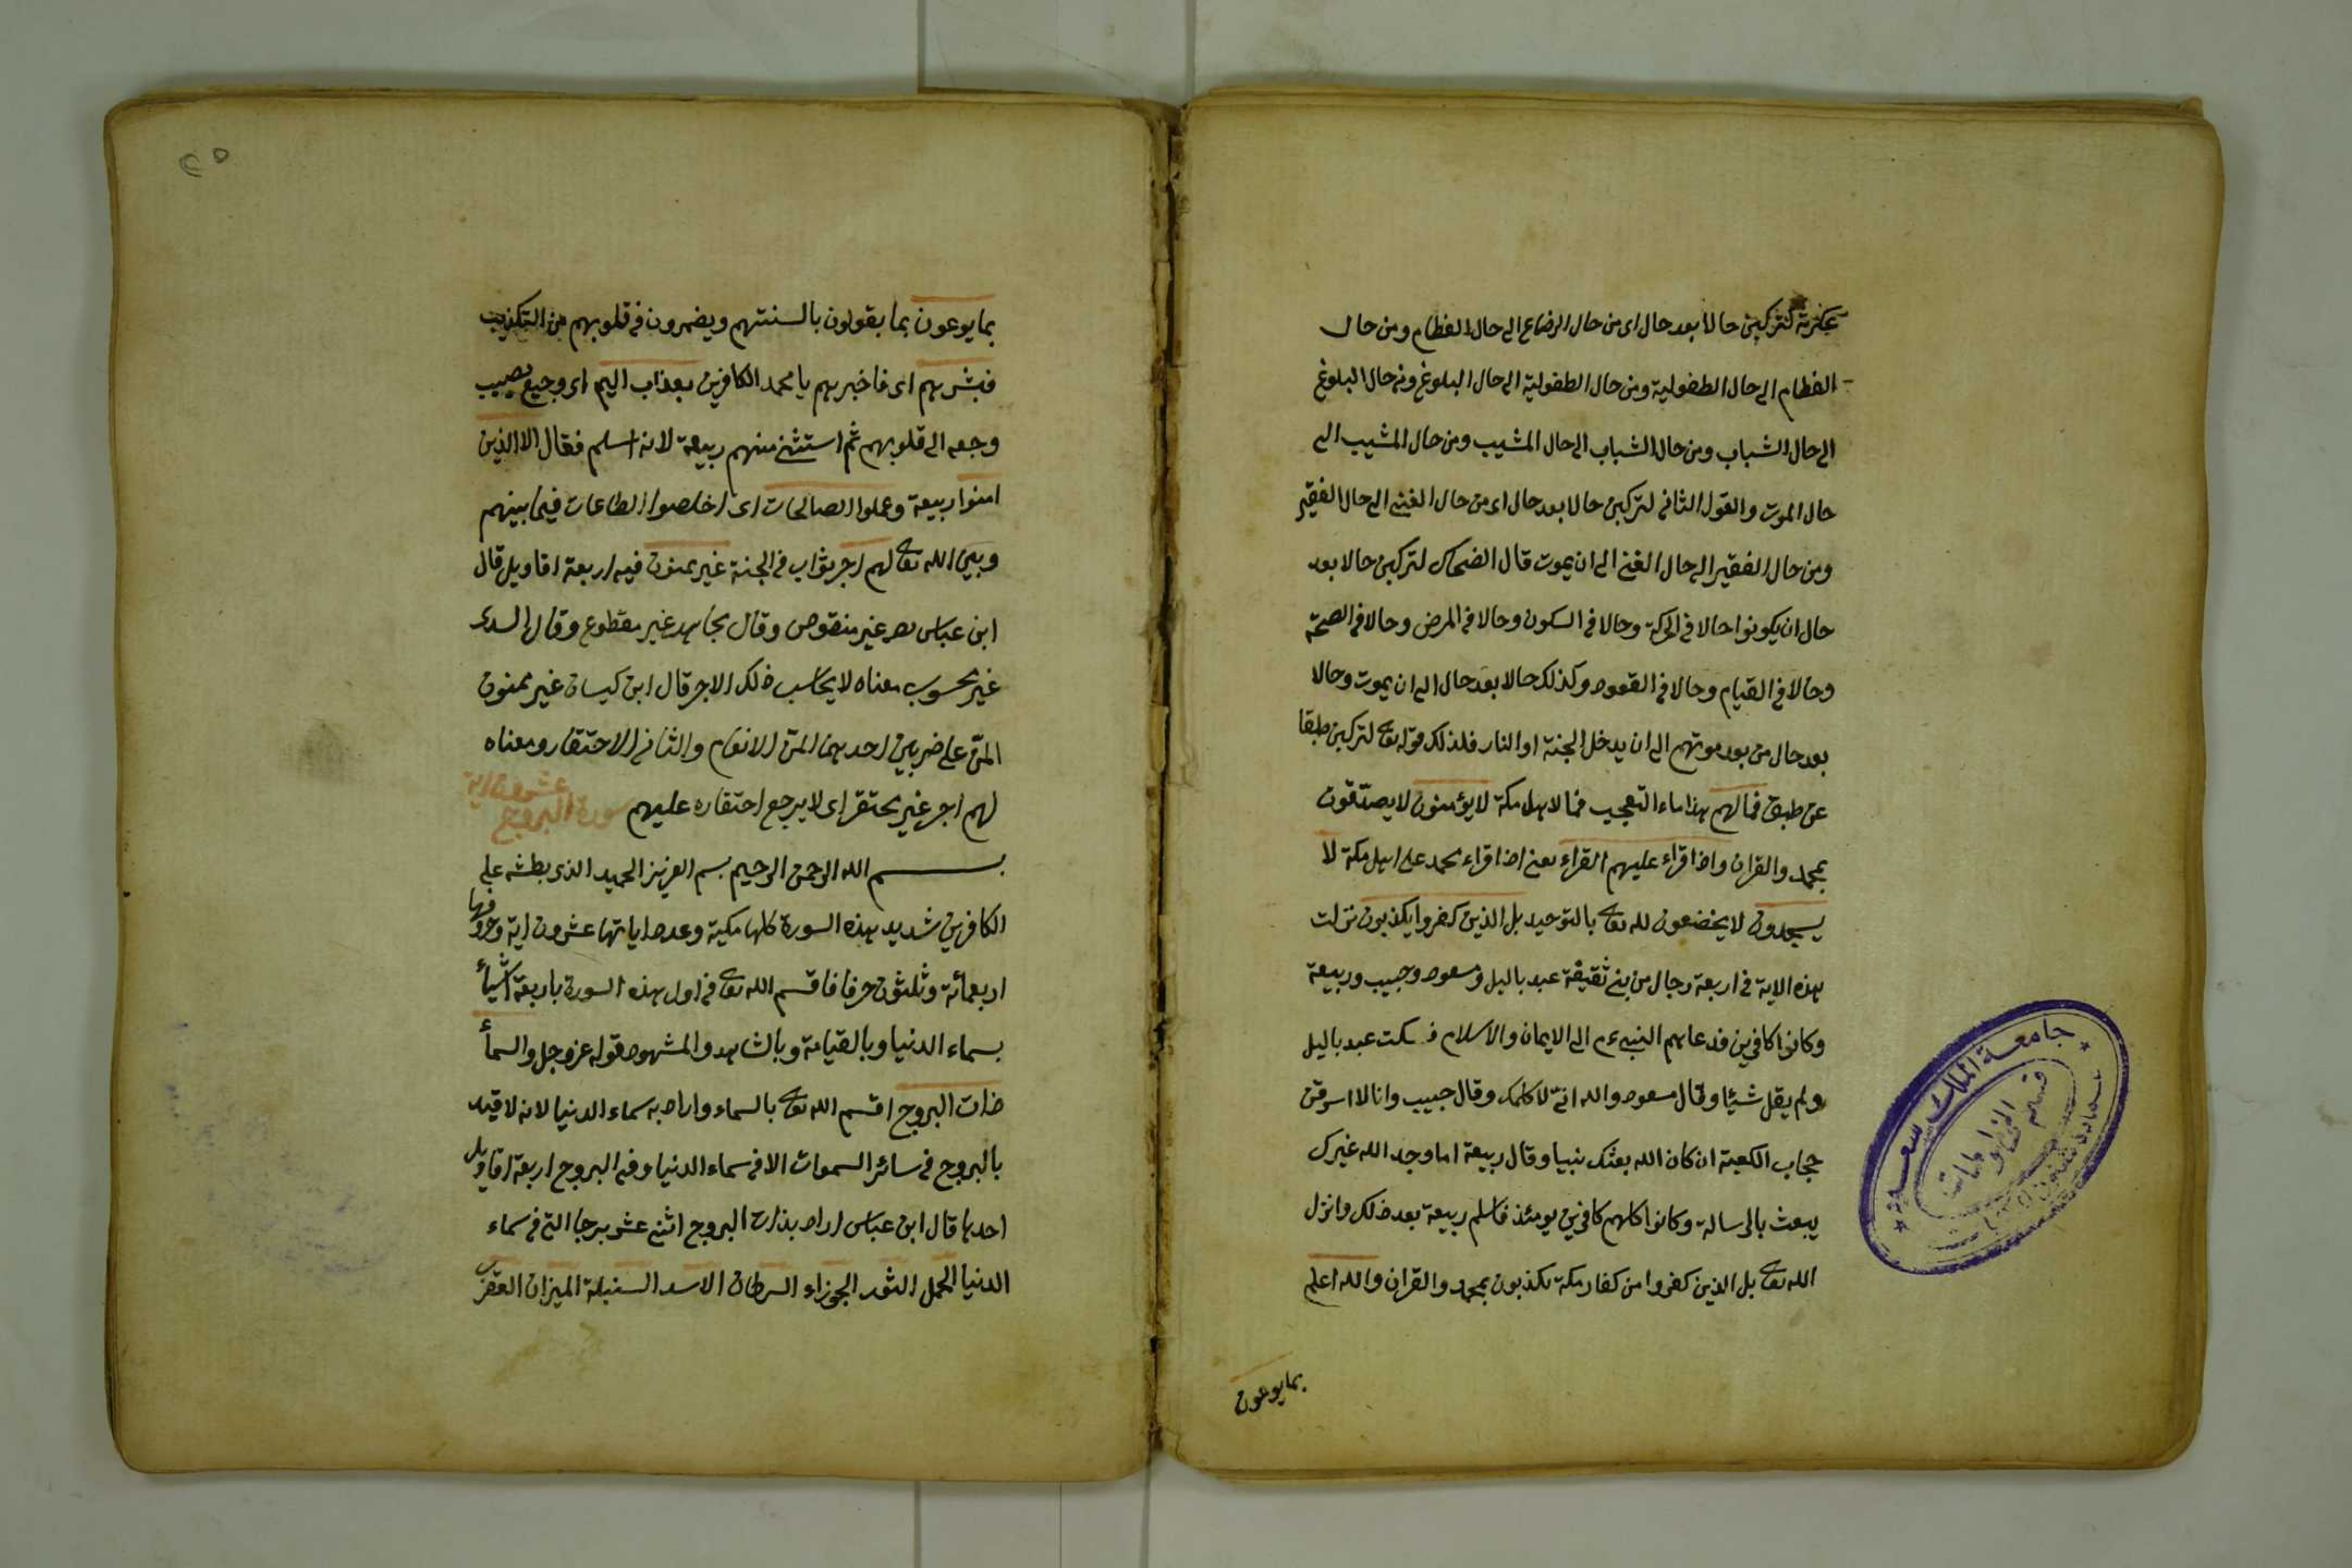 عكرمة لتركبن حالا بعد حال اى من حال الرضاع الى حال الفطام ومن حال
الفطام الى حال الطفولية ومن حال الطفولية الى حال البلوغ ومن حال البلوغ
الى حال الشباب ومن حال الشباب الى حال المشيب ومن حال المشيب الى
حال الموت والقول الثانى لتركبن حالا بعد حال اى من حال الغنى الى حال الفقير
ومن حال الفقير الى حال الغنى الى ان يموت قال الضحاك لتركبن حالا بعد
حال ان يكونوا حالا فى الحركة وحالا فى السكون وحالا فى المرض وحالا فى الصحة
وحالا فى القيام وحالا فى القعود وكذلك حالا بعد حال الى ان يموت وحالا
بعد حال من بعد موتهم الى ان يدخل الجنة او النار فلذلك قوله تعالى لتركبن طبقا
عن طبق فمالهم هذا ماء التعجيب فما لاهل مكة لا يؤمنون لا يصدقون
بمحمد والقران واذا قراء عليهم القراء يعنى اذا قراء محمد على اهل مكة لا
يسجدون لا يخضعون لله تعالى بالتوحيد بل الذين كفروا يكذبون نزلت
هذه الاية فى اربعة رجال من بنى ثقيفة عبد ياليل ومسعود وحبيب وربيعة
وكانوا كافرين فدعاهم النبى عم الى الايمان والاسلام فسكت عبد ياليل
ولم يقل شيئا وقال مسعود والله انى لا اكلمك وقال حبيب وانا لا اسرقن
حجاب الكعبة ان كان الله بعثك نبيا وقال ربيعة اما وجد الله غيرك
يبعث بالرسالة وكانوا كلهم كافرين يومئذ فاسلم ربيعة بعد ذلك وانزل
الله تعالى بل الذين كفروا من كفار مكة يكذبون بمحمد والقران والله اعلم
بما يوعون
جامعة الملك سعود
قسم المخطوطات
بما يوعون بما يقولون بالسنتهم ويضمرون فى قلوبهم من التكذيب
فبشرهم اى فاخبرهم يا محمد الكافرين بعذاب اليم اى وجيع يصيب
وجعه الى قلوبهم ثم استثنى منهم ربيعة لانه اسلم فقال الا الذين
امنوا ربيعة وعملوا الصالحات اى اخلصوا الطاعات فيما بينهم
وبين الله تعالى لهم اجر ثواب فى الجنة غير ممنون فيه اربعة اقاويل قال
ابن عباس غير منقوص وقال مجاهد غير مقطوع وقال السدى
غير محسوب معناه لا يحاسب ذلك الاجر قال ابن كيسان غير ممنون
المن على ضربين احدهما المن الانعام والثانى الاحتقار ومعناه
لهم اجر غير محتقر اى لا يرجع احتقاره عليهم سورة البروج عشرون اية
بسم الله الرحمن الرحيم بسم العزيز الحميد الذى بطشه على
الكافرين شديد هذه السورة كلها مكية وعدد اياتها عشرون اية وحروفها
اربعمائة وثلثون حرفا فاقسم الله تعالى فى اول هذه السورة باربعة اشياء
بسماء الدنيا وبالقيامة وبالشاهد والمشهود قوله عز وجل والسماء
ذات البروج اقسم الله تعالى بالسماء واراد به سماء الدنيا لانه لا قيد
بالبروج فى سائر السموات الا فى سماء الدنيا وفى البروج اربعة اقاويل
احدها قال ابن عباس اراد بذات البروج اثنى عشر برجا التى فى سماء
الدنيا الحمل الثور الجوزاء السرطان الاسد السنبلة الميزان العقرب